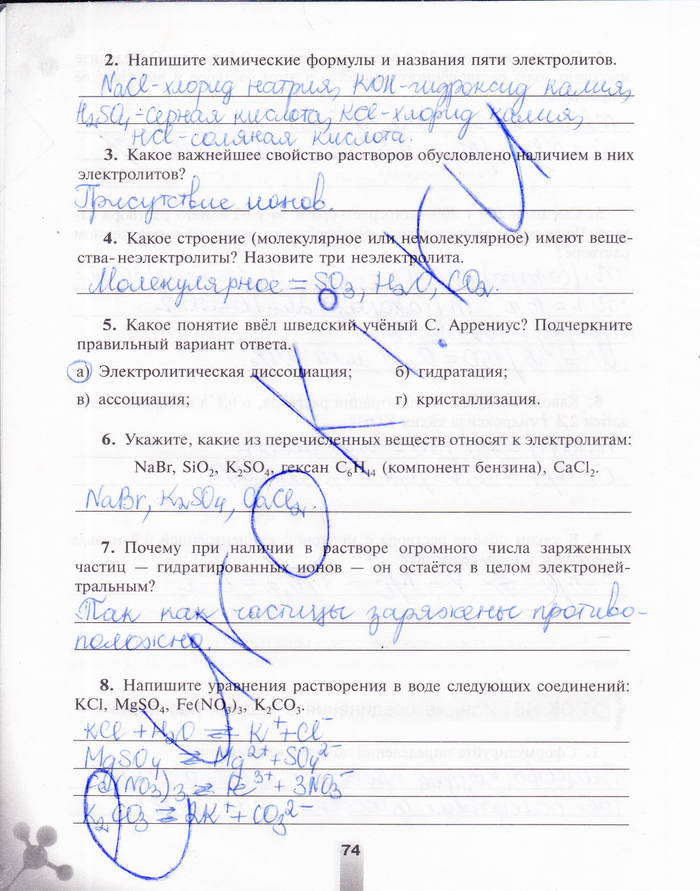 2. Напишите химические формулы и названия пяти электролитов.
NaCl-хлорид натрия, KOH-гидроксид калия,
H₂SO₄-серная кислота, KCl-хлорид калия,
HCl-соляная кислота.
3. Какое важнейшее свойство растворов обусловлено наличием в них
электролитов?
Присутствие ионов.
4. Какое строение (молекулярное или немолекулярное) имеют веще-
ства-неэлектролиты? Назовите три неэлектролита.
Молекулярное = SO₃, H₂O, CO₂.
5. Какое понятие ввёл шведский учёный С. Аррениус? Подчеркните
правильный вариант ответа.
а) Электролитическая диссоциация; б) гидратация;
в) ассоциация; г) кристаллизация.
6. Укажите, какие из перечисленных веществ относят к электролитам:
NaBr, SiO₂, K₂SO₄, гексан C₆H₁₄ (компонент бензина), CaCl₂.
NaBr, K₂SO₄, CaCl₂.
7. Почему при наличии в растворе огромного числа заряженных
частиц — гидратированных ионов — он остаётся в целом электроней-
тральным?
Так как частицы заряжены противо-
положно.
8. Напишите уравнения растворения в воде следующих соединений:
KCl, MgSO₄, Fe(NO₃)₃, K₂CO₃.
KCl + H₂O ⇄ K⁺+Cl⁻
MgSO₄ ⇄ Mg²⁺+SO₄²⁻
Fe(NO₃)₃ ⇄ Fe³⁺+ 3NO₃⁻
K₂CO₃ ⇄ 2K⁺+ CO₃²⁻
74
UROKI.KU